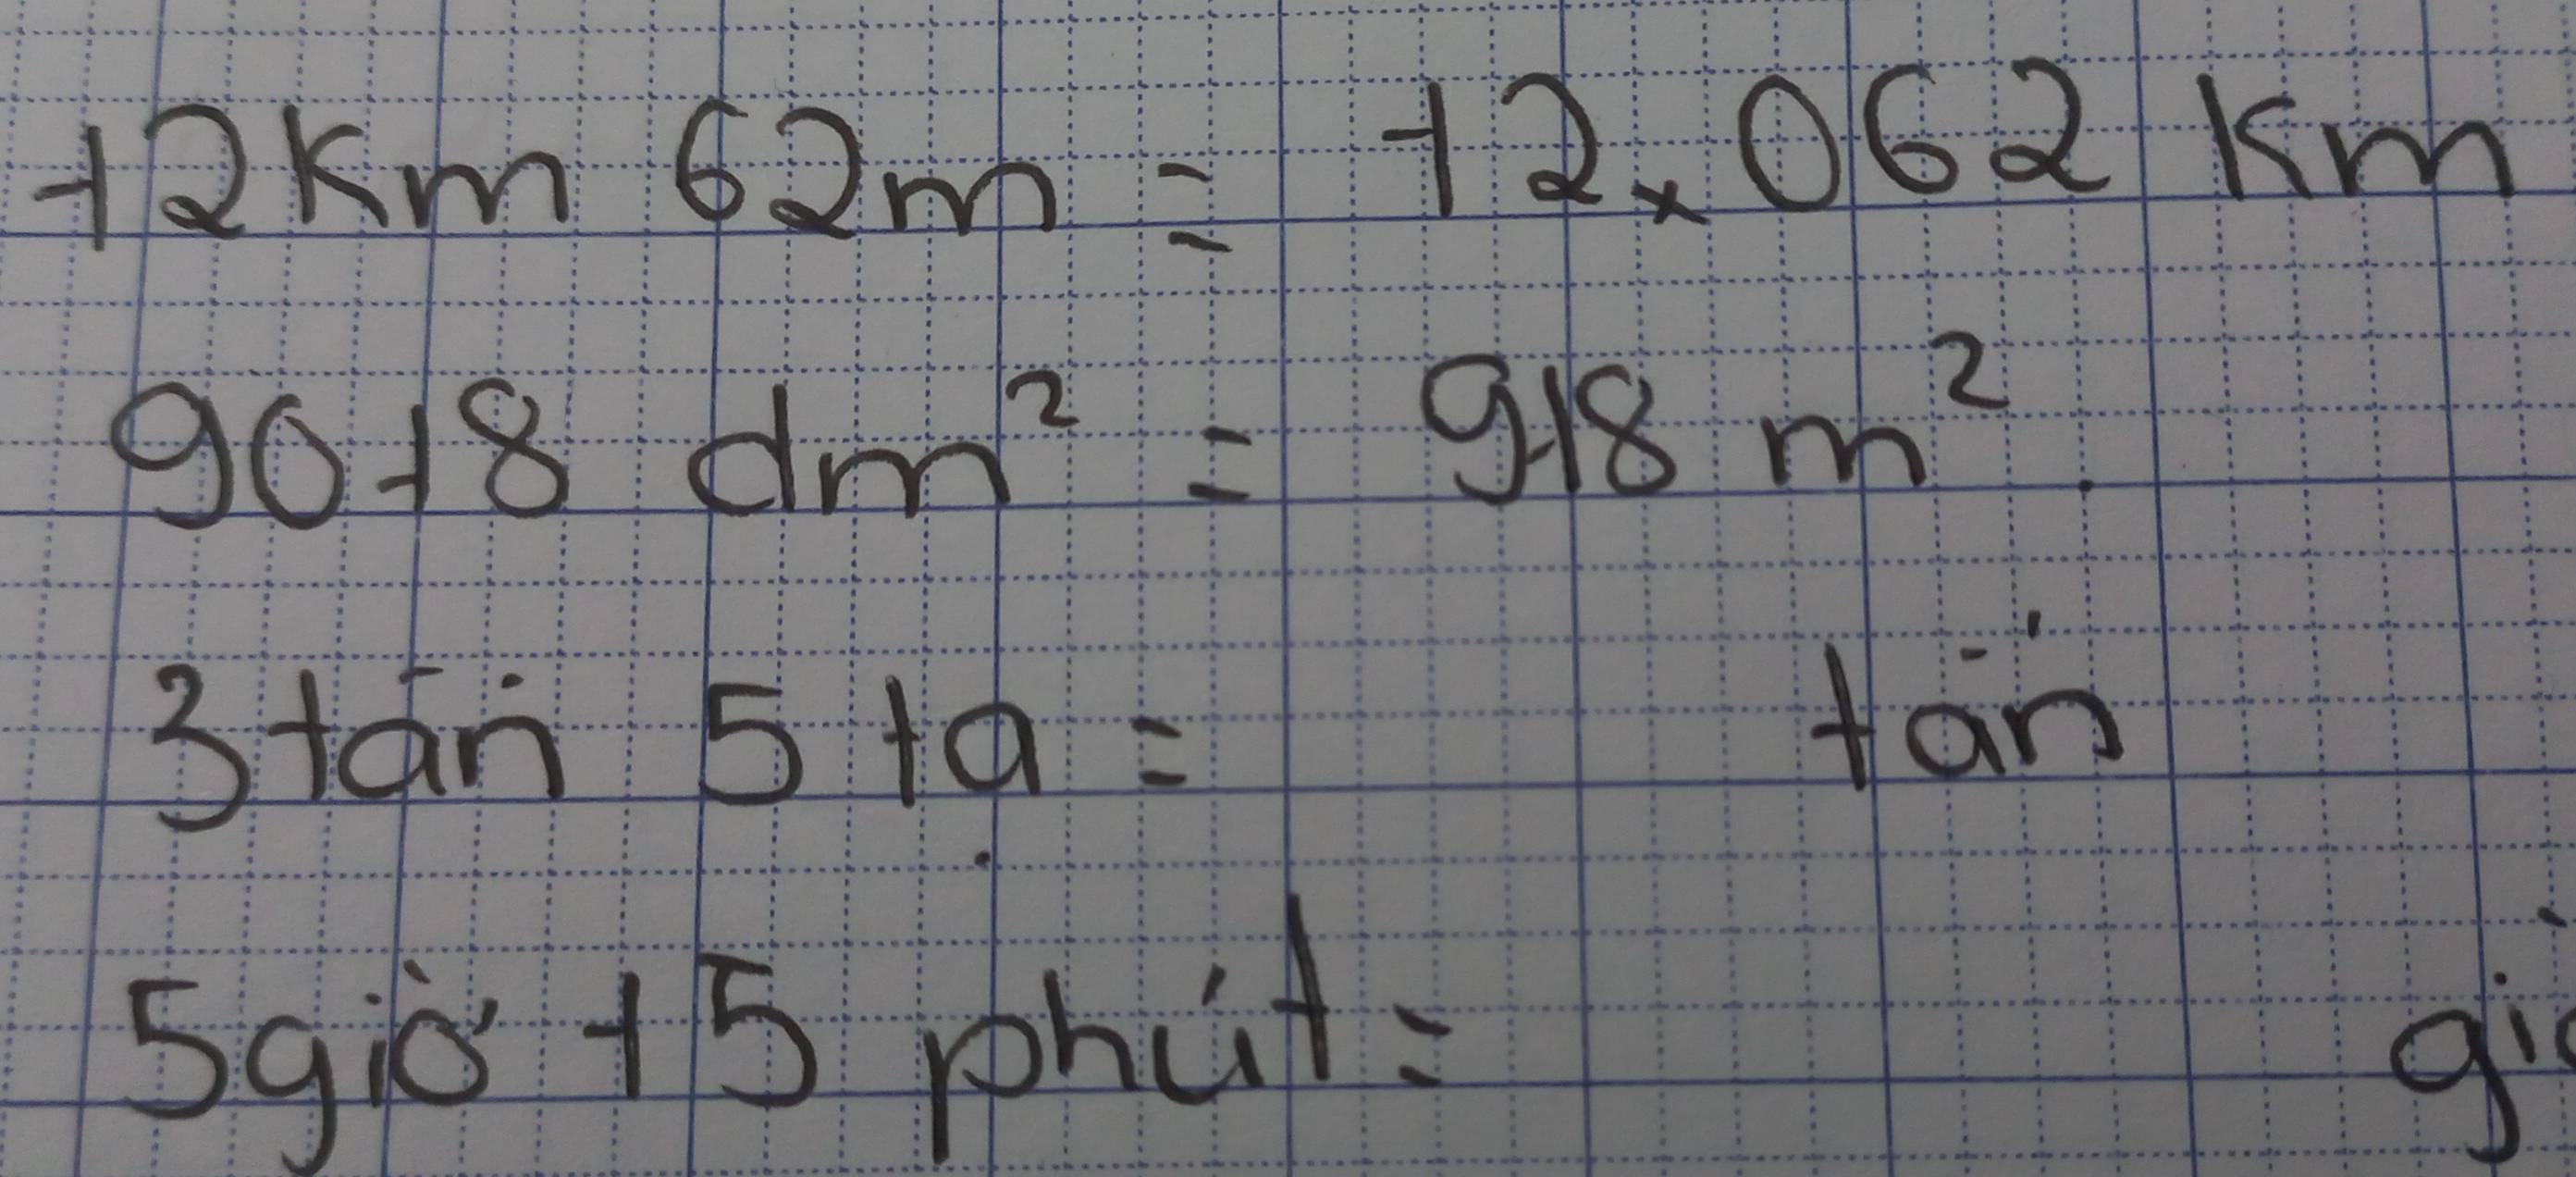 12km 62m = 12.062 km
9018 dm² = 918 m².
3 tấn 5 tạ = tấn
5 giờ 15 phút =